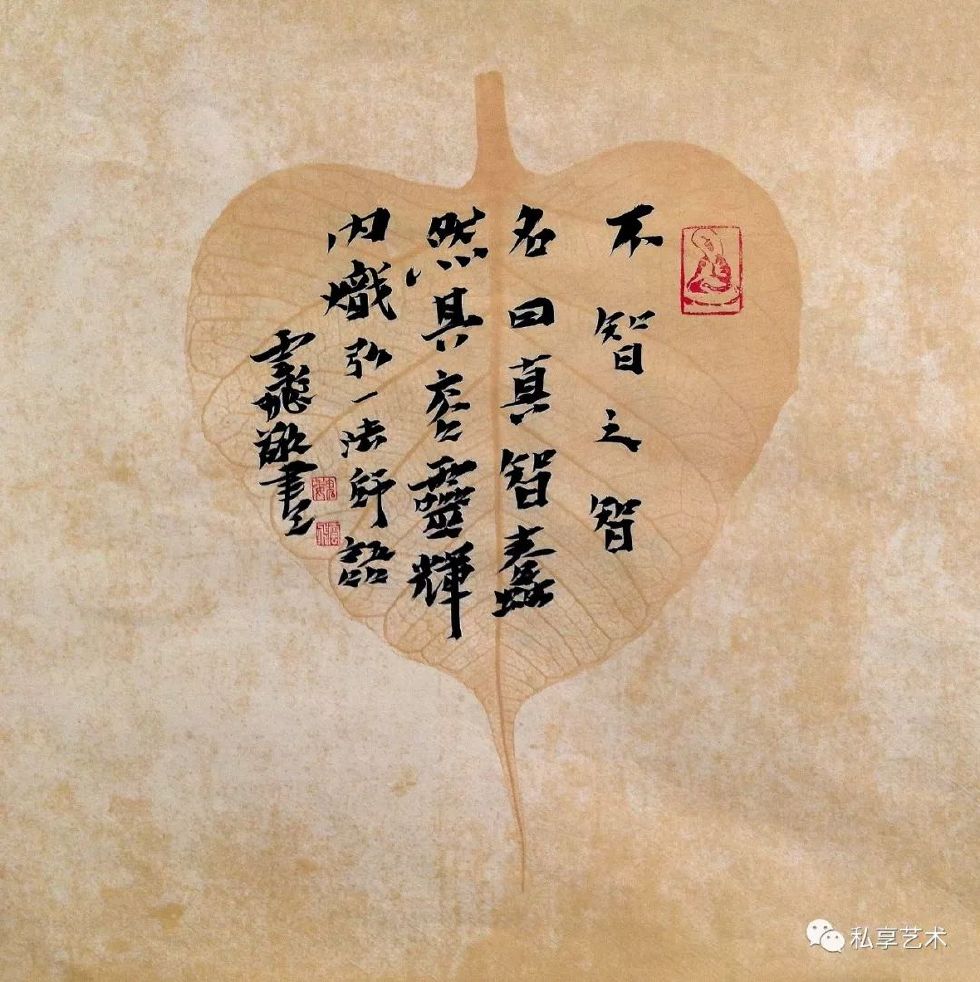 不智之智
名曰真智蠢
然其容靈輝
内熾弘一法師語
雲飛敬書之
私享艺术